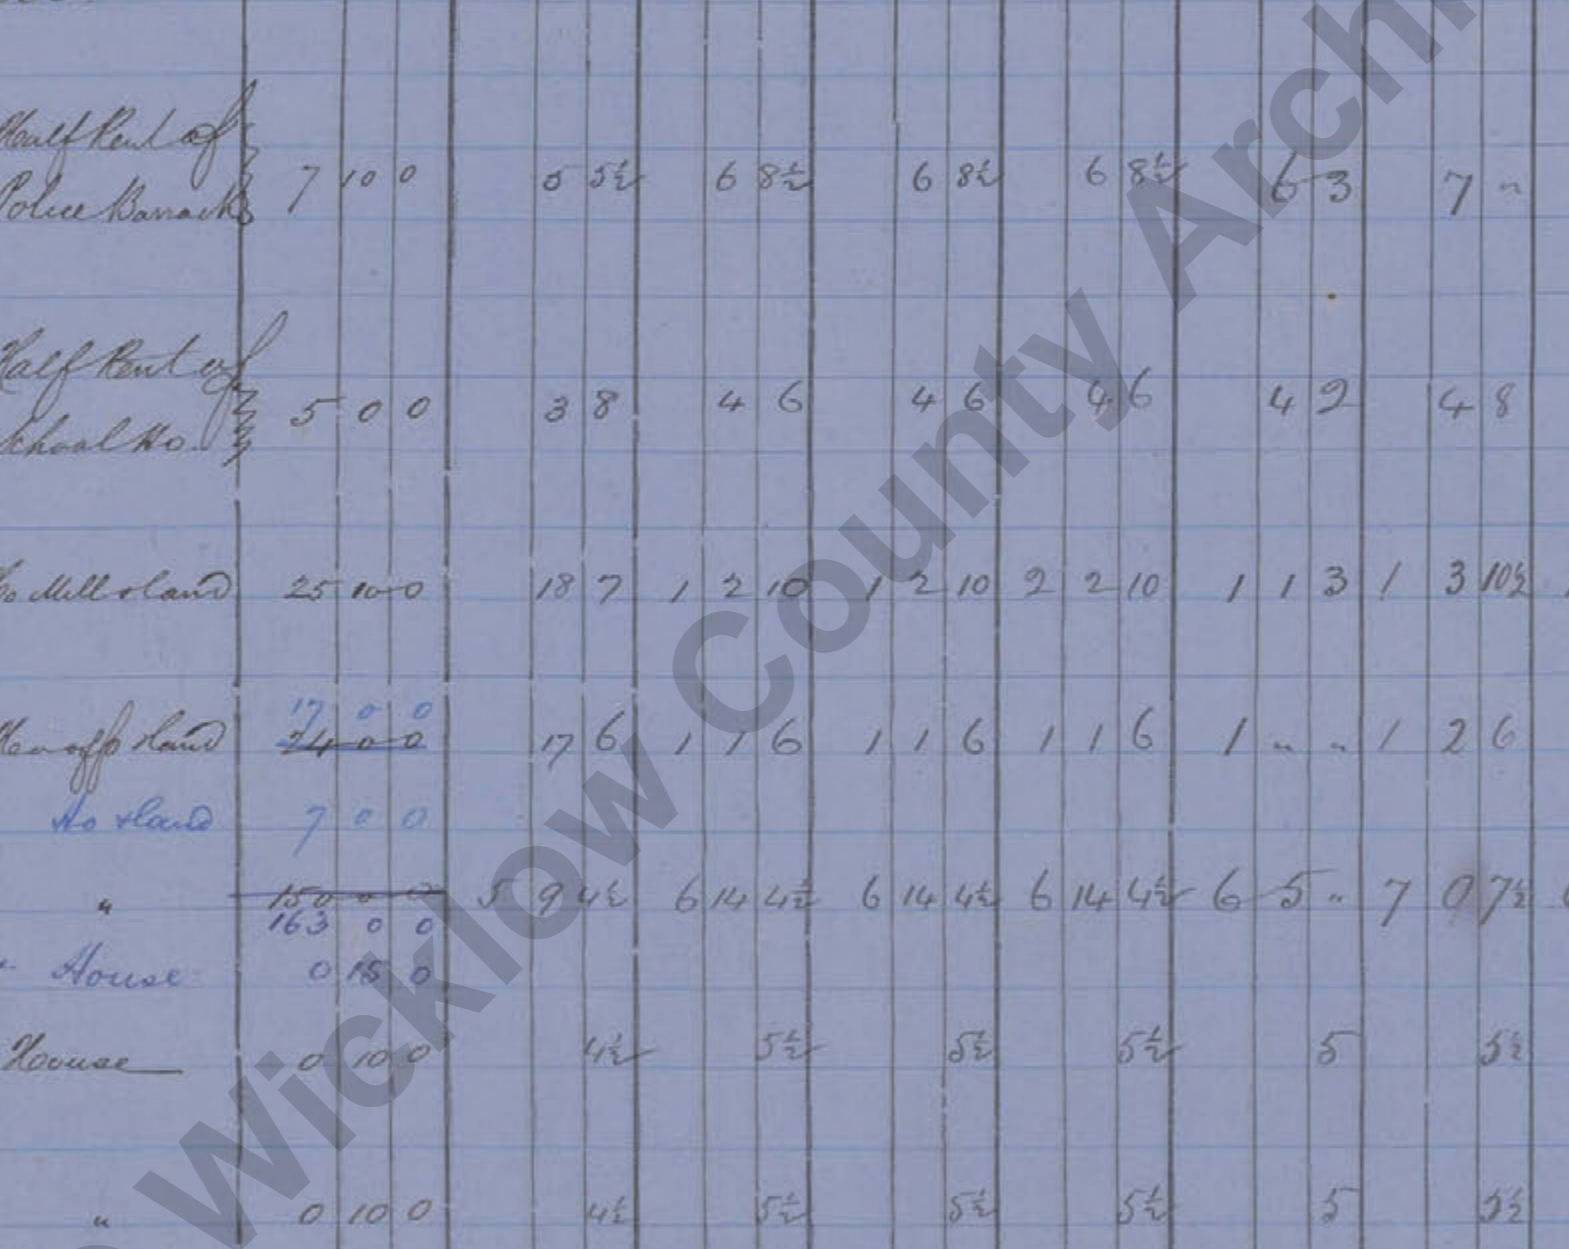 Half Rent of
Police Barrack 7 10 0 5 5½ 6 8½ 6 8½ 6 8½ 6 3 7 "
Half Rent of
School Ho. 5 0 0 3 8 4 6 4 6 4 6 4 2 4 8
Ho Mill & land 25 10 0 18 7 1 2 10 1 2 10 2 2 10 1 1 3 1 3 10½
17 0 0
Ho offs & land 24 0 0 17 6 1 1 6 1 1 6 1 1 6 1 " " 1 2 6
Ho & land 7 0 0
" 150 0 0 5 9 4½ 6 14 4½ 6 14 4½ 6 14 4½ 6 5 " 7 0 7½
163 0 0
House 0 15 0
House 0 10 0 4½ 5½ 5½ 5½ 5 5½
" 0 10 0 4½ 5½ 5½ 5½ 5 5½
Wicklow County Archi